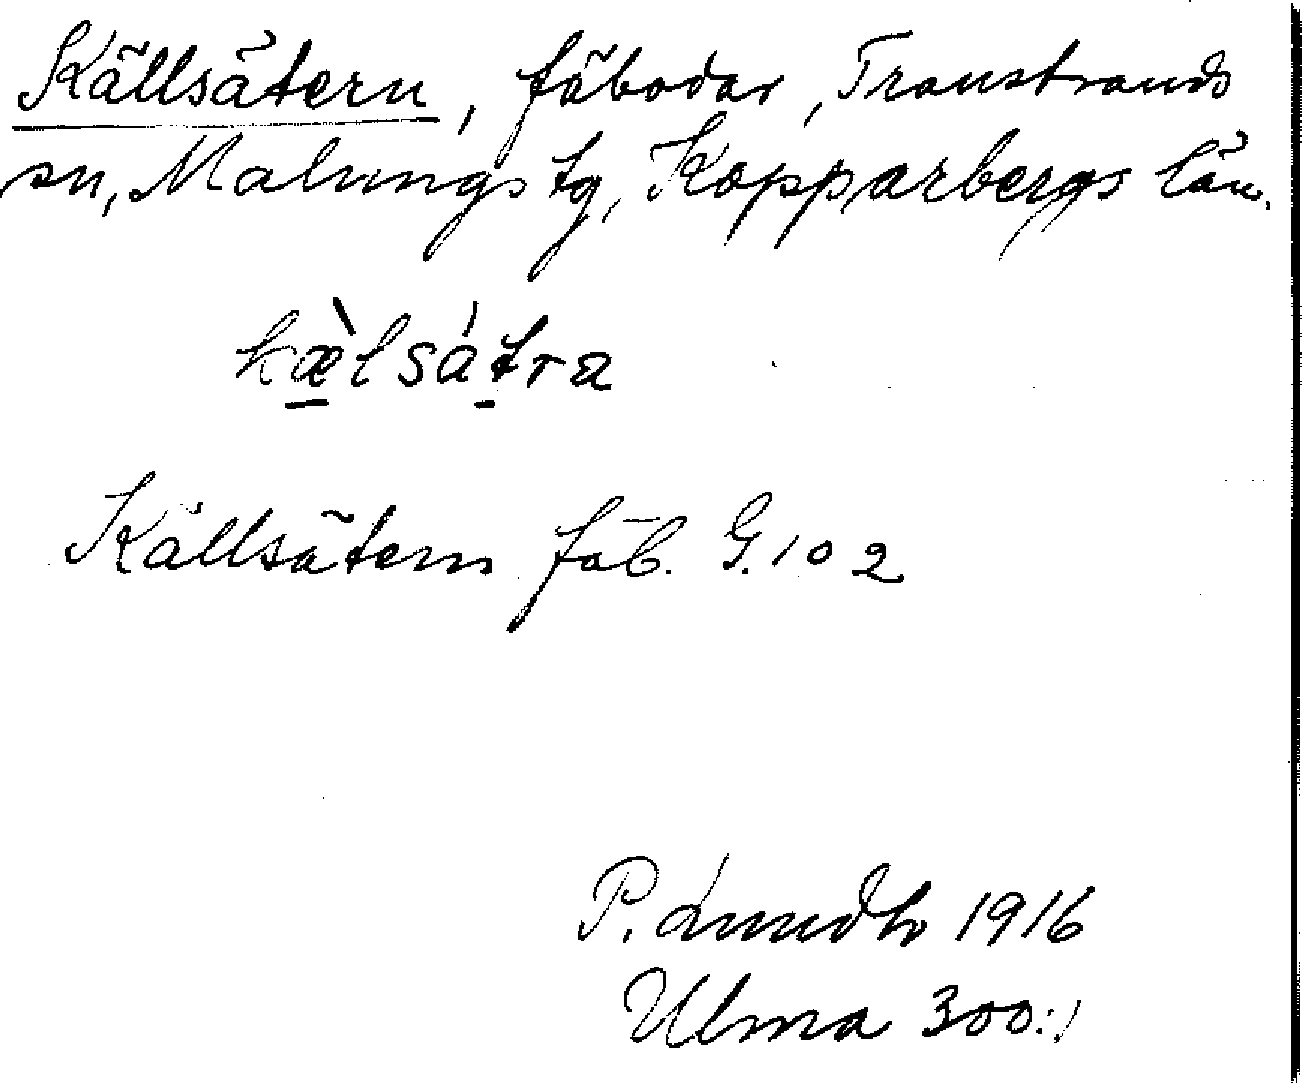 Källsätern, fäbodar, Transtrands
sn, Malungs tg, Kopparbergs län.
kæ̀lsátra
Källsätern fäb. G. 102
P. Lundh 1916
Ulma 300:1